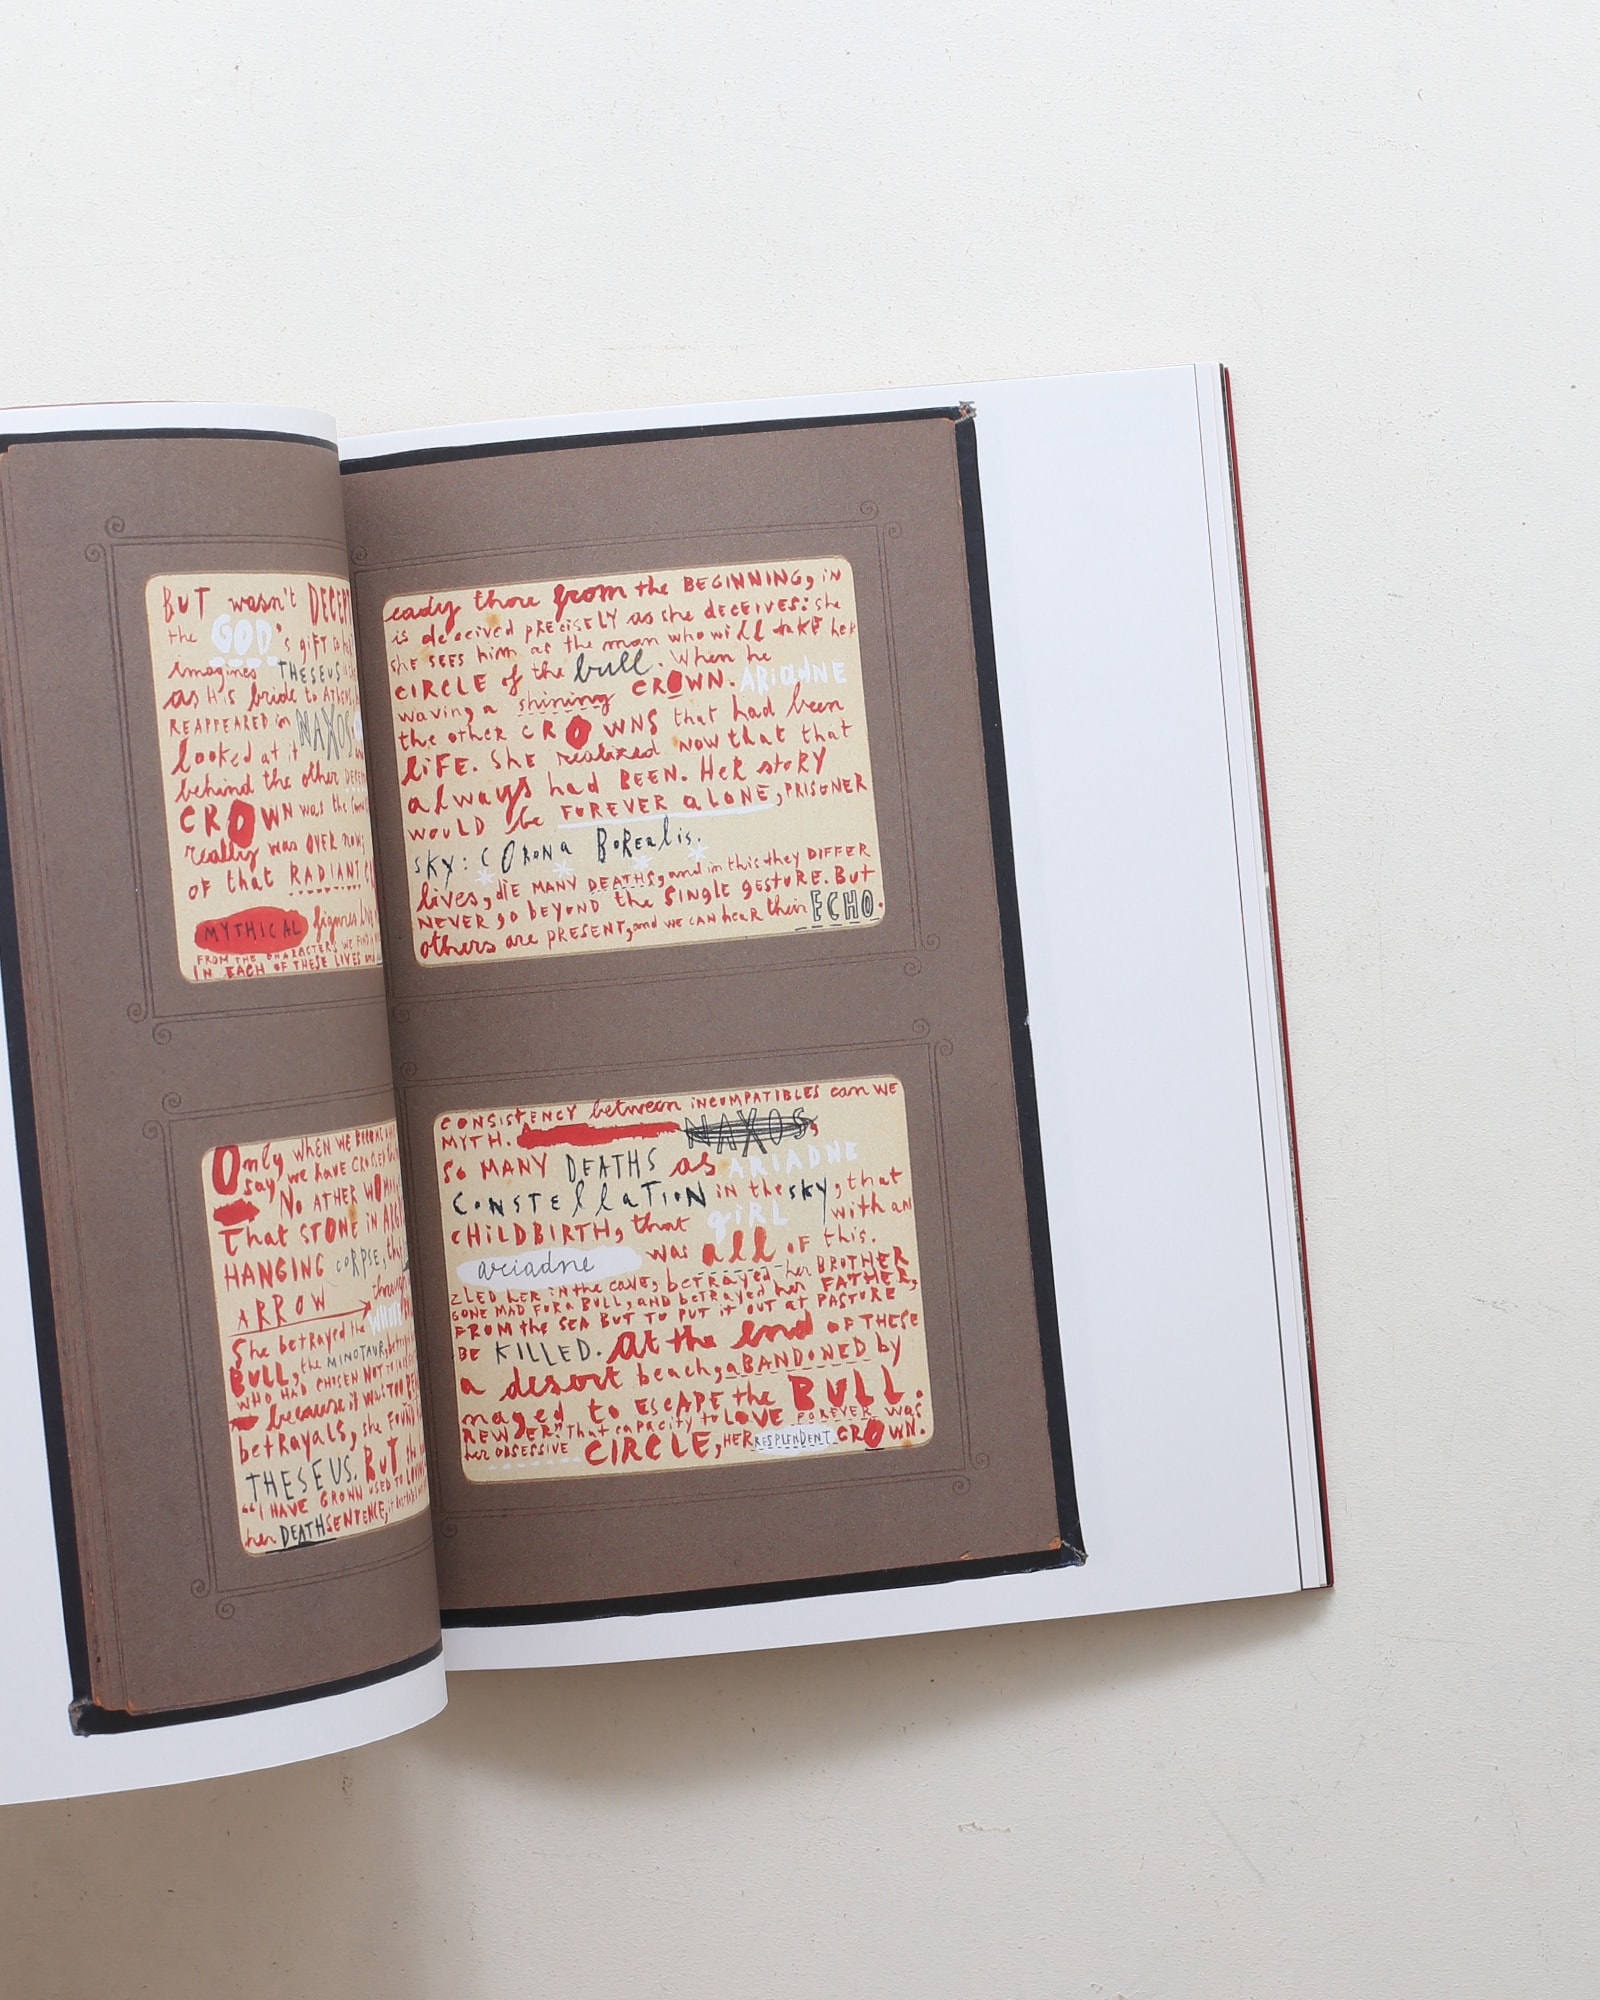 BUT wasn't
the GOD's gift
imagines THESEUS
as His bride to
REAPPEARED in NAXOS
looked at it
behind the other
CROWN was the
really was OVER now;
OF that RADIANT
MYTHICAL figures
FROM THE CHARACTERS WE FIND
IN EACH OF THESE LIVES and
eady there from the BEGINNING, iN
is deceived PRECiSELY as she DECEIVES: she
she SEES him as the man who will take her
CIRCLE of the bull. When he
waving a shining CROWN. ARiadNE
the other CROWNS that had been
LiFE. She realized now that that
always had BEEN. Her story
WOULD be FOREVER aLONE, PRISONER
sky: CORONa BoREalis.
lives, diE MANY DEATHS, and in this they DIFFER
NEVER go BEYOND the SINGLE gESTURE. But
others are PRESENT, and WE CAN hEAR their ECHO.
Only WHEN WE BECOME
say we have CROSSED
No ATHER
That STONE in
HANGING CORPSE,
ARROW through
She betrayed the
BULL, the MINOTAUR,
WHO HAD CHOSEN NOT TO
because it was TOO
betrayals, she FOUND
THESEUS. BUT
"I HAVE GROWN USED TO
her DEATH SENTENCE,
CONSISTENCY between iNCOMPATIBLES can WE
MYTH. NAXOS,
So MANY DEATHS as ARIADNE
CoNSTEllaTiON iN the sky, that
CHiLDBIRTH, that giRL with an
ariadne was all OF this.
ZLED HER iN the CAVE, bETRAYED her BROTHER
GONE MAD FOR a BULL, AND bETRAYED her FATHER,
FROM the SEA BUT TO PUT iT OUT AT PASTURE,
BE KILLED. At the end OF THESE
a desert beach, aBANDONED by
naged to EsCAPE the BULL.
RENDER." That capacity to LOVE FOREVER was
her OBSESSIVE CIRCLE, HER RESPLENDENT CROWN.